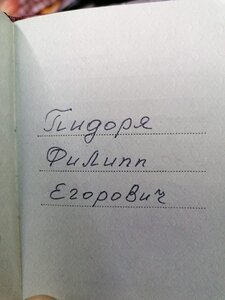 Пидоря
Филипп
Егорович